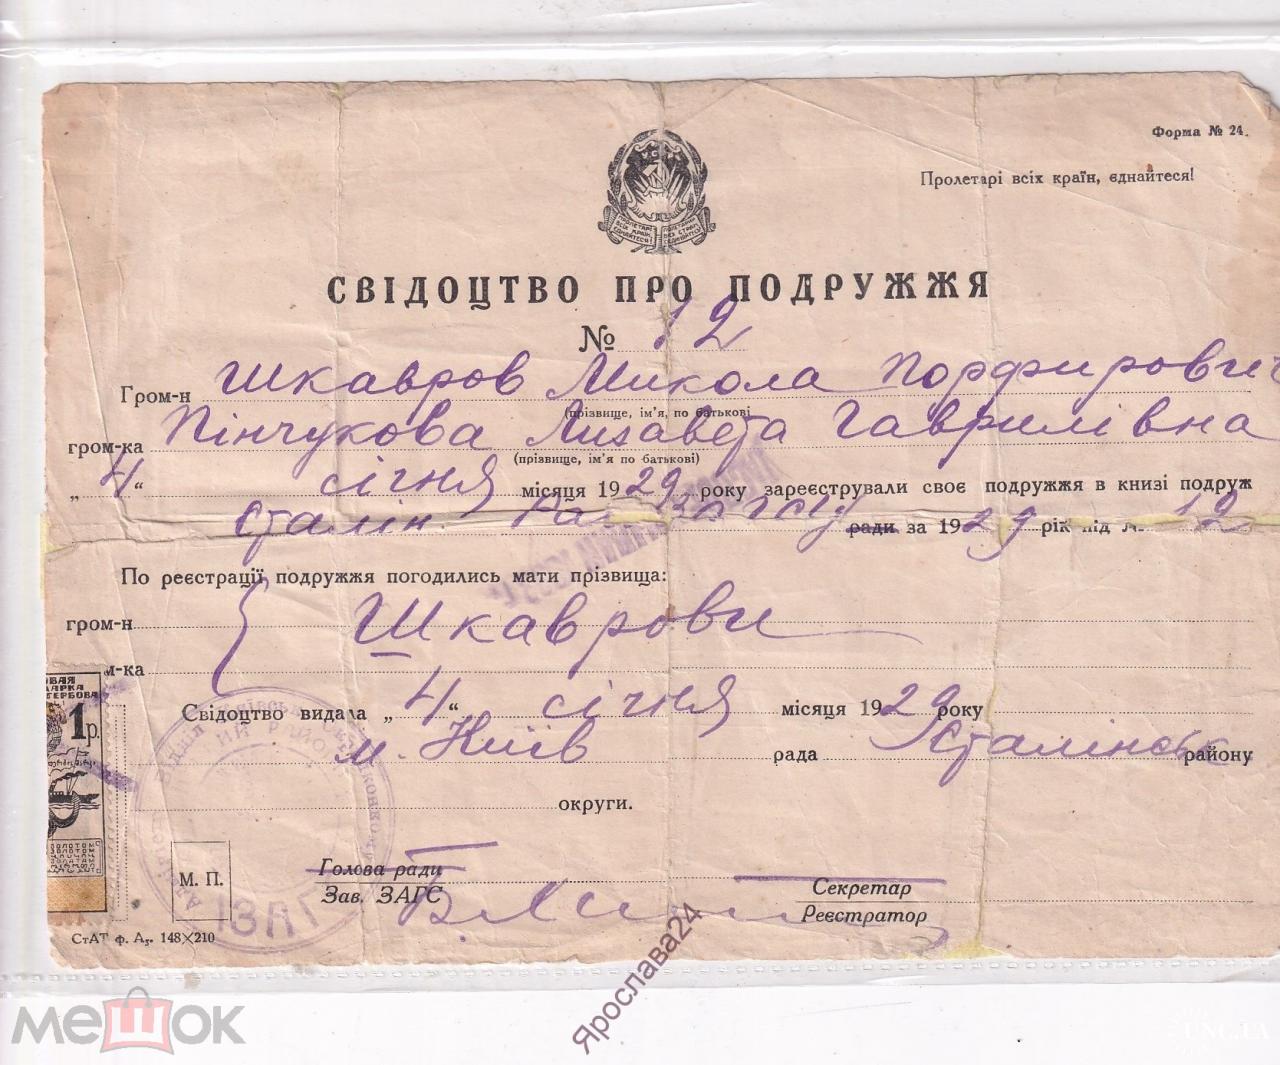 Форма № 24.
Пролетарі всіх країн, єднайтеся!
СВІДОЦТВО ПРО ПОДРУЖЖЯ
№ 12
Гром-н Шкавров Микола Порфирович
(прізвище, ім'я, по батькові
гром-ка Пінчукова Лизавета Гаврилівна
(прізвище, ім'я по батькові)
„ 4 “ січня місяця 1929 року зареєстрували своє подружжя в книзі подруж
Сталін ради за 1929 рік під № 12
По реєстрації подружжя погодились мати прізвища:
гром-н Шкаврови
м-ка
Свідоцтво видала „ 4 “ січня місяця 1929 року
м. Київ рада Сталінськ району
округи.
М. П.
Голова ради
Зав. ЗАГС
Секретар
Реєстратор
СтАТ ф. А5. 148×210
1 р.
мешок
Ярослава24
UNC.UA